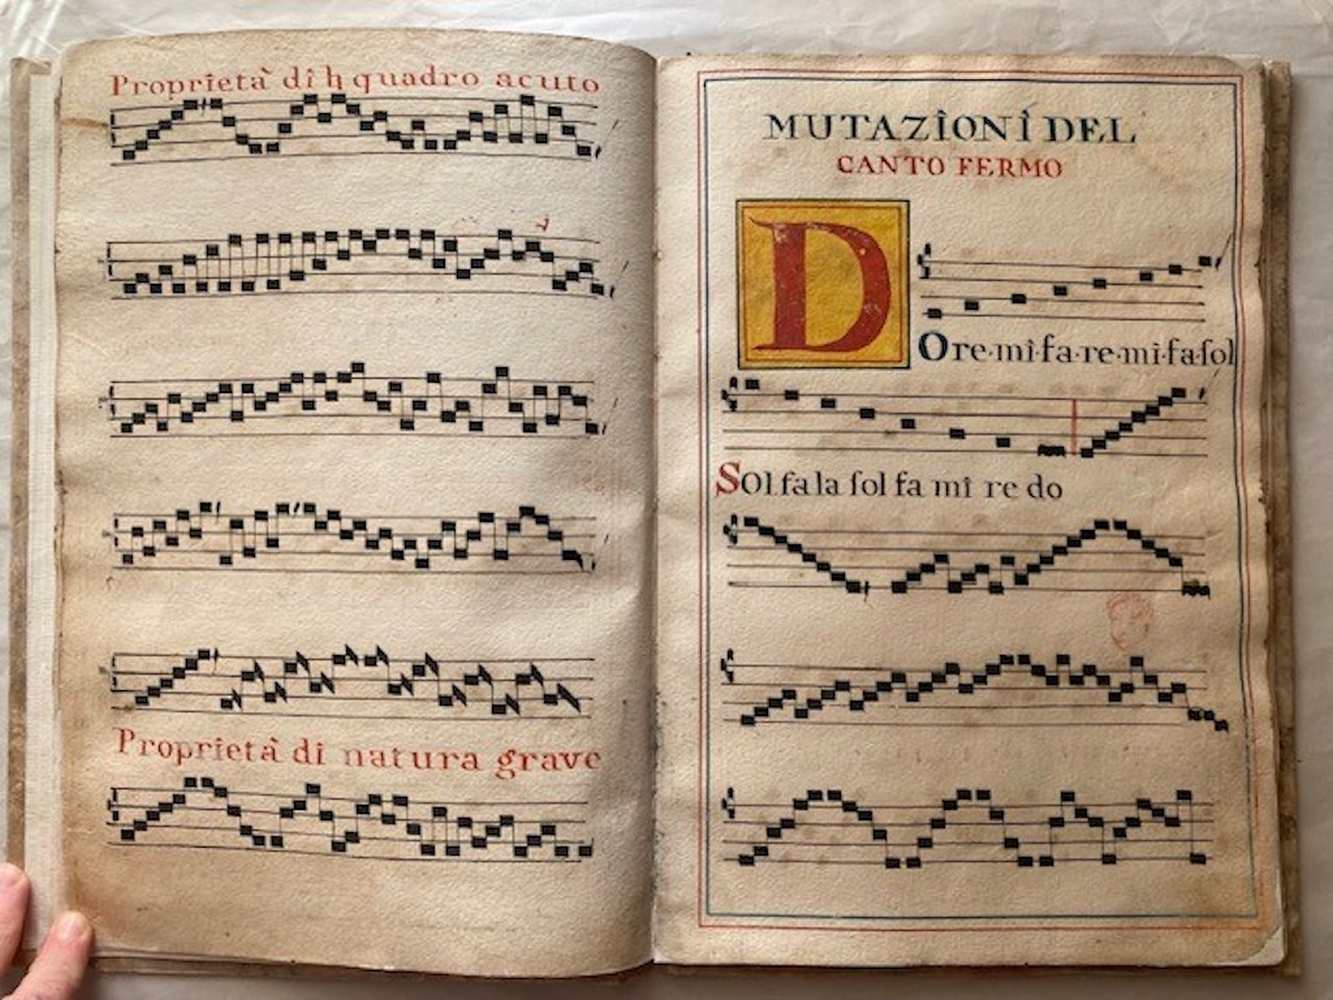 Proprietà di h quadro acuto
Proprietà di natura grave
MUTAZIONI DEL
CANTO FERMO
DOre·mi·fa·re·mi·fa·ſol
Sol fa la ſol fa mi re do